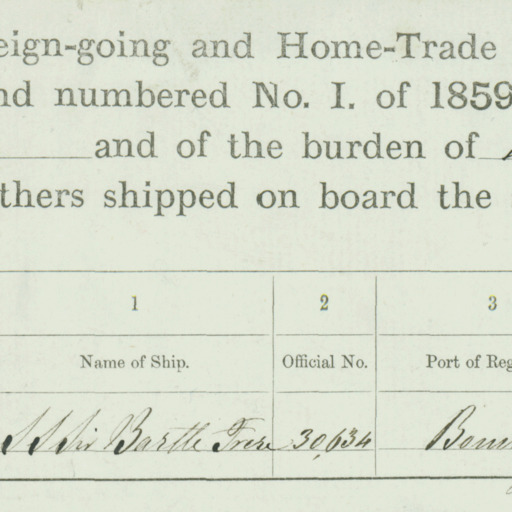 eign-going and Home-Trade
nd numbered No. I. of 1859
and of the burden of
thers shipped on board the
1 2 3
Name of Ship. Official No. Port of Reg
SS Sir Bartle Frere 30,634 Bom